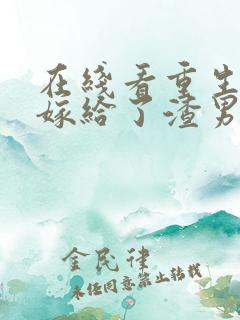 在綫看重生
嫁給了渣男
金民律
未经同意禁止转载